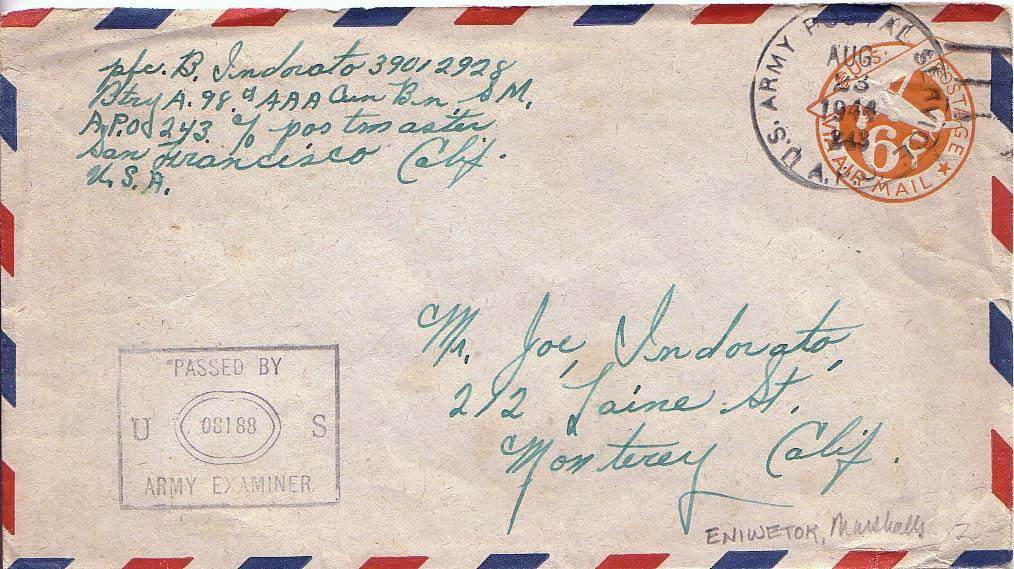 pfc. B. Indorato 39012928
Btry A. 98.th AAA Gun Bn. S M.
A.P.O 243. % postmaster
San Francisco Calif.
U.S.A.
U.S. ARMY POSTAL SERVICE
AUG
23
1944
243
A.P.O.
U.S. POSTAGE
6¢
VIA AIR MAIL
Mr. Joe, Indorato,
212 Laine St.
Monterey Calif.
PASSED BY
U 08188 S
ARMY EXAMINER
ENIWETOK, Marshalls